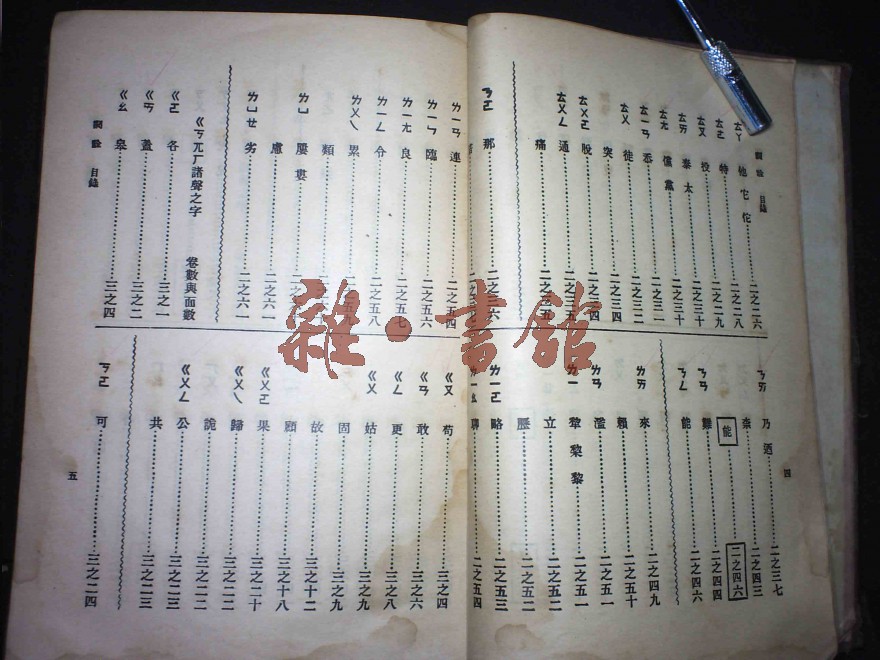 詞詮 目錄
ㄊㄚ 他它佗……二之二六
ㄊㄜ 特……二之二八
ㄊㄡ 投……二之二九
ㄊㄞ 泰太……二之三十
ㄊㄤ 儻黨……二之三十
ㄊㄧㄢ 忝……二之三二
ㄊㄨ 徒……二之三二
突……二之三四
ㄊㄨㄛ 脫……二之三四
ㄊㄨㄥ 通……二之三五
痛……二之三五
ㄋㄛ 那……二之三六
ㄋㄞ 乃迺……二之三七
柰……二之四三
能……二之四六
ㄋㄢ 難……二之四四
ㄋㄥ 能……二之四六
ㄌㄞ 來……二之四九
賴……二之五十
ㄌㄢ 濫……二之五一
ㄌㄧ 犂黎……二之五一
立……二之五二
歷……二之五二
ㄌㄧㄛ 略……二之五三
ㄌㄧㄠ 聊……二之五四
四
詞詮 目錄
ㄌㄧㄢ 連……二之五四
ㄌㄧㄣ 臨……二之五六
ㄌㄧㄤ 良……二之五七
ㄌㄧㄥ 令……二之五八
ㄌㄨㄟ 累
類
ㄌㄩ 屢婁
慮……二之六一
ㄌㄩㄝ 劣……二之六一
ㄍㄎ兀厂諸聲之字 卷數與面數
ㄍㄛ 各……三之一
ㄍㄞ 蓋……三之二
ㄍㄠ 皋……三之四
ㄍㄡ 苟……三之四
ㄍㄢ 敢……三之六
ㄍㄥ 更……三之八
ㄍㄨ 姑……三之九
固……三之九
故……三之十二
顧……三之十八
ㄍㄨㄛ 果……三之二十
ㄍㄨㄟ 歸……三之二二
詭……三之二二
ㄍㄨㄥ 公……三之二三
共……三之二三
ㄎㄛ 可……三之二四
五
雜·書館